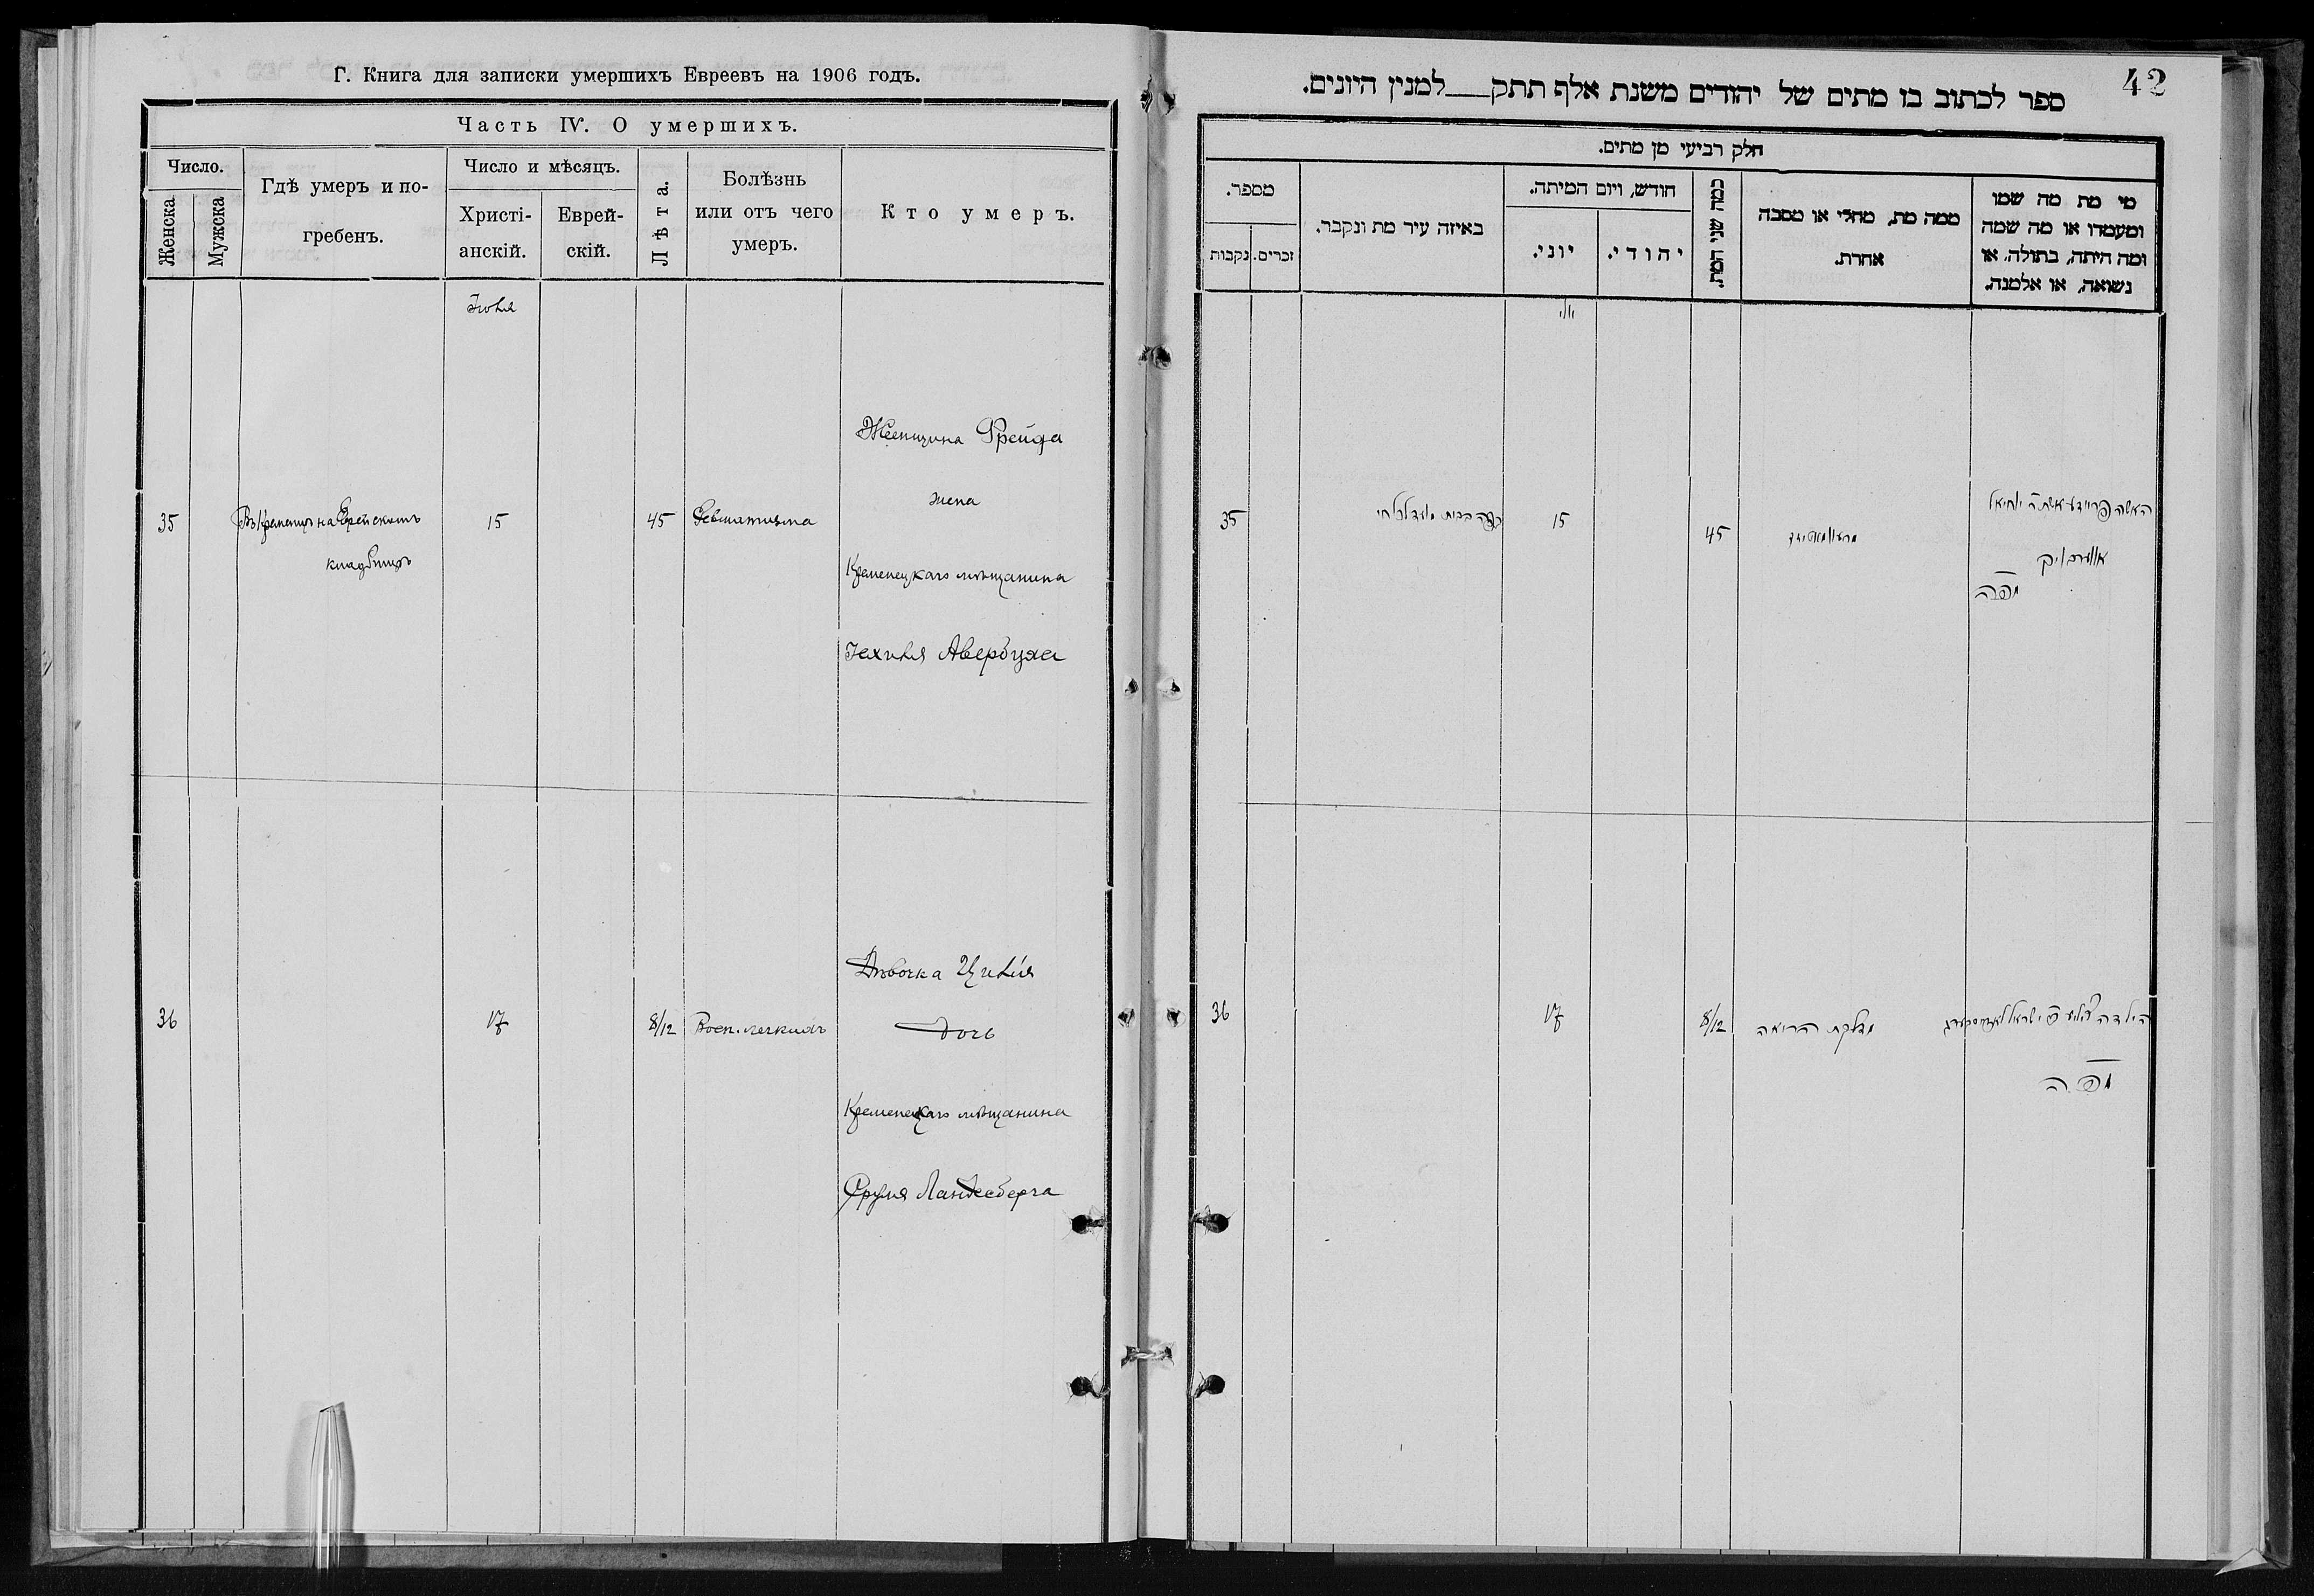 Г. Книга для записки умершихъ Евреевъ на 1906 годъ.
Часть IV. О умершихъ.
Число.
Женска
Мужска
Гдѣ умеръ и по-
гребенъ.
Число и мѣсяцъ.
Христі-
анскій.
Еврей-
скій.
Лѣта.
Болѣзнь
или отъ чего
умеръ.
Кто умеръ.
Іюля
35
Въ Кременцѣ на Еврейскомъ
кладбищѣ
15
45
Ревматизма
Женщина Фрейда
жена
Кременецкаго мѣщанина
Іехиля Авербуха
36
17
8/12
Восп. легкихъ
Дѣвочка Цивія
дочь
Кременецкаго мѣщанина
Сруля Ландесберга
42
ספר לכתוב בו מתים של יהודים משנת אלף תתק למנין היונים.
חלק רביעי מן מתים.
מספר.
זכרים.
נקבות
באיזה עיר מת ונקבר.
חודש, ויום המיתה.
יוני.
יהודי.
כמה שני המת.
ממה מת, מחלי או מסבה
אחרת.
מי מת מה שמו
ומעמדו או מה שמה
ומה היתה, בתולה, או
נשואה, או אלמנה.
יולי
35
15
45
האשה פריידע אשת ר' יחיאל
אווערבוך
מפה
36
17
8/12
דלקת הריאה
הילדה
מפה